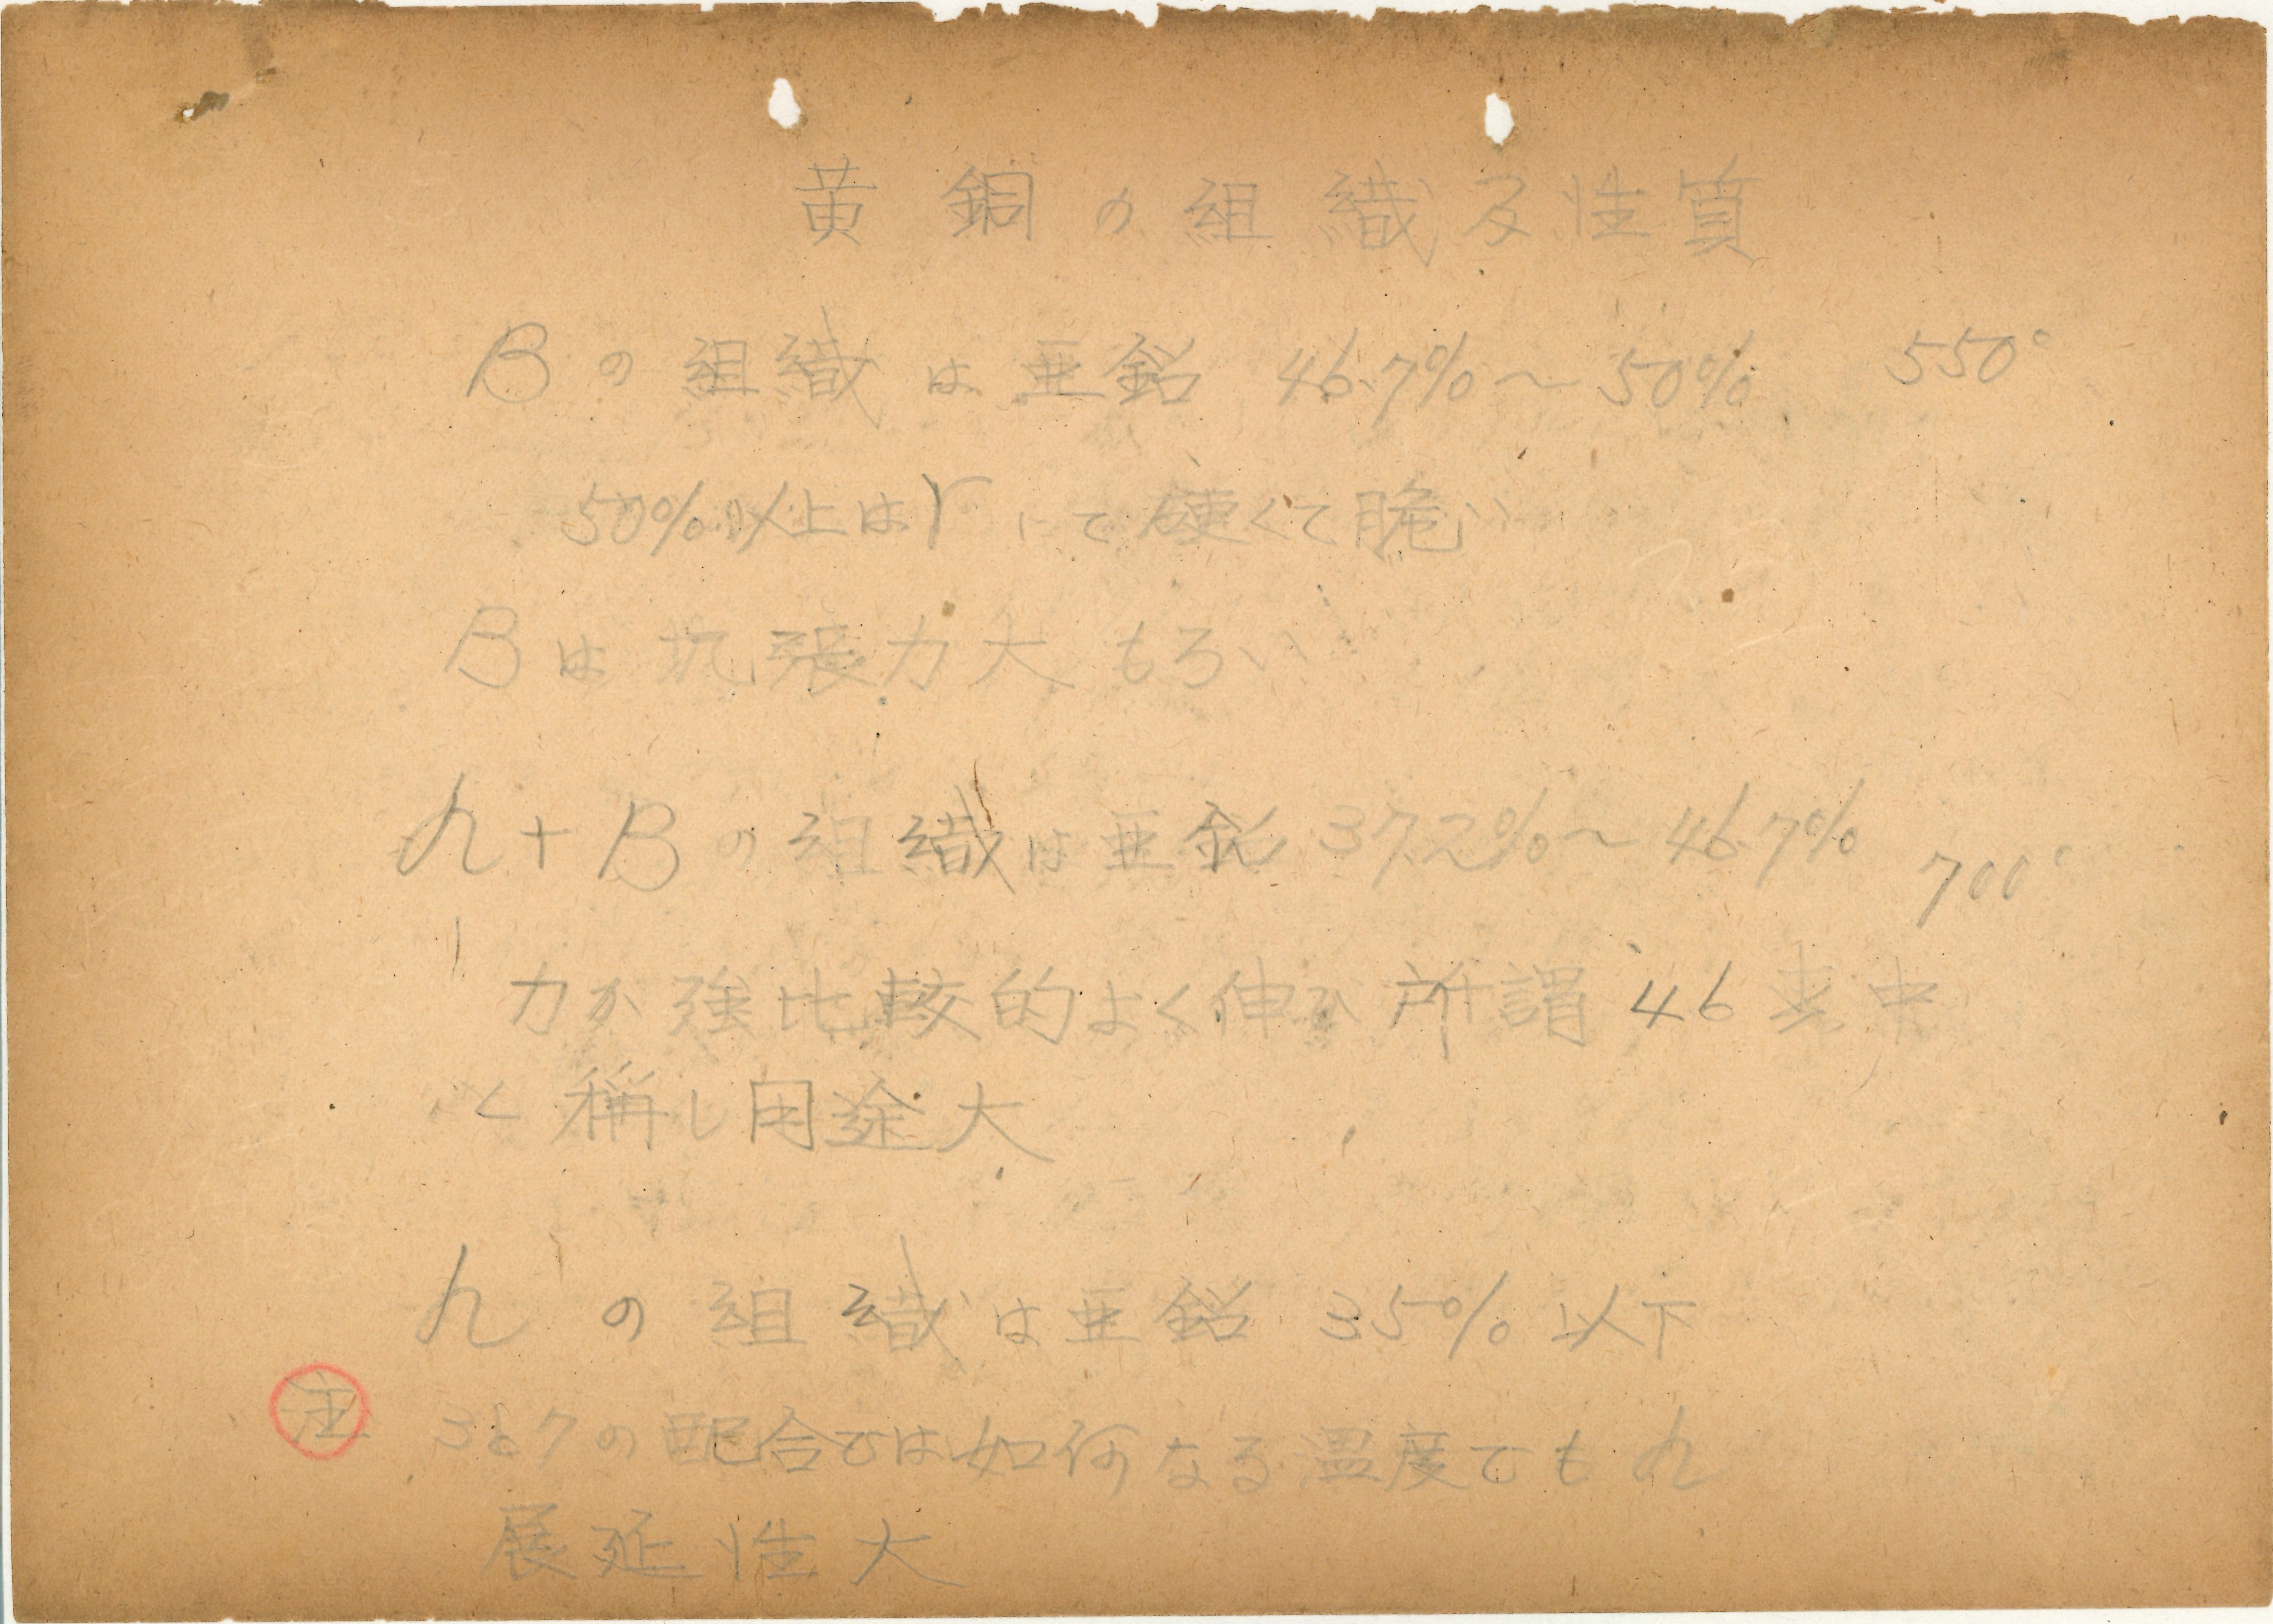 黄銅の組織及性質
Bの組織は亜鉛 46.7%～50% 550°
50%以上はrにて硬くて脆い
Bは抗張力大 もろい
h+Bの組織は亜鉛 37.2%～46.7% 700°
力が強比較的よく伸び所謂 46
と称し用途大
hの組織は亜鉛 35% 以下
注 3と7の配合では如何なる温度でもh
展延性大